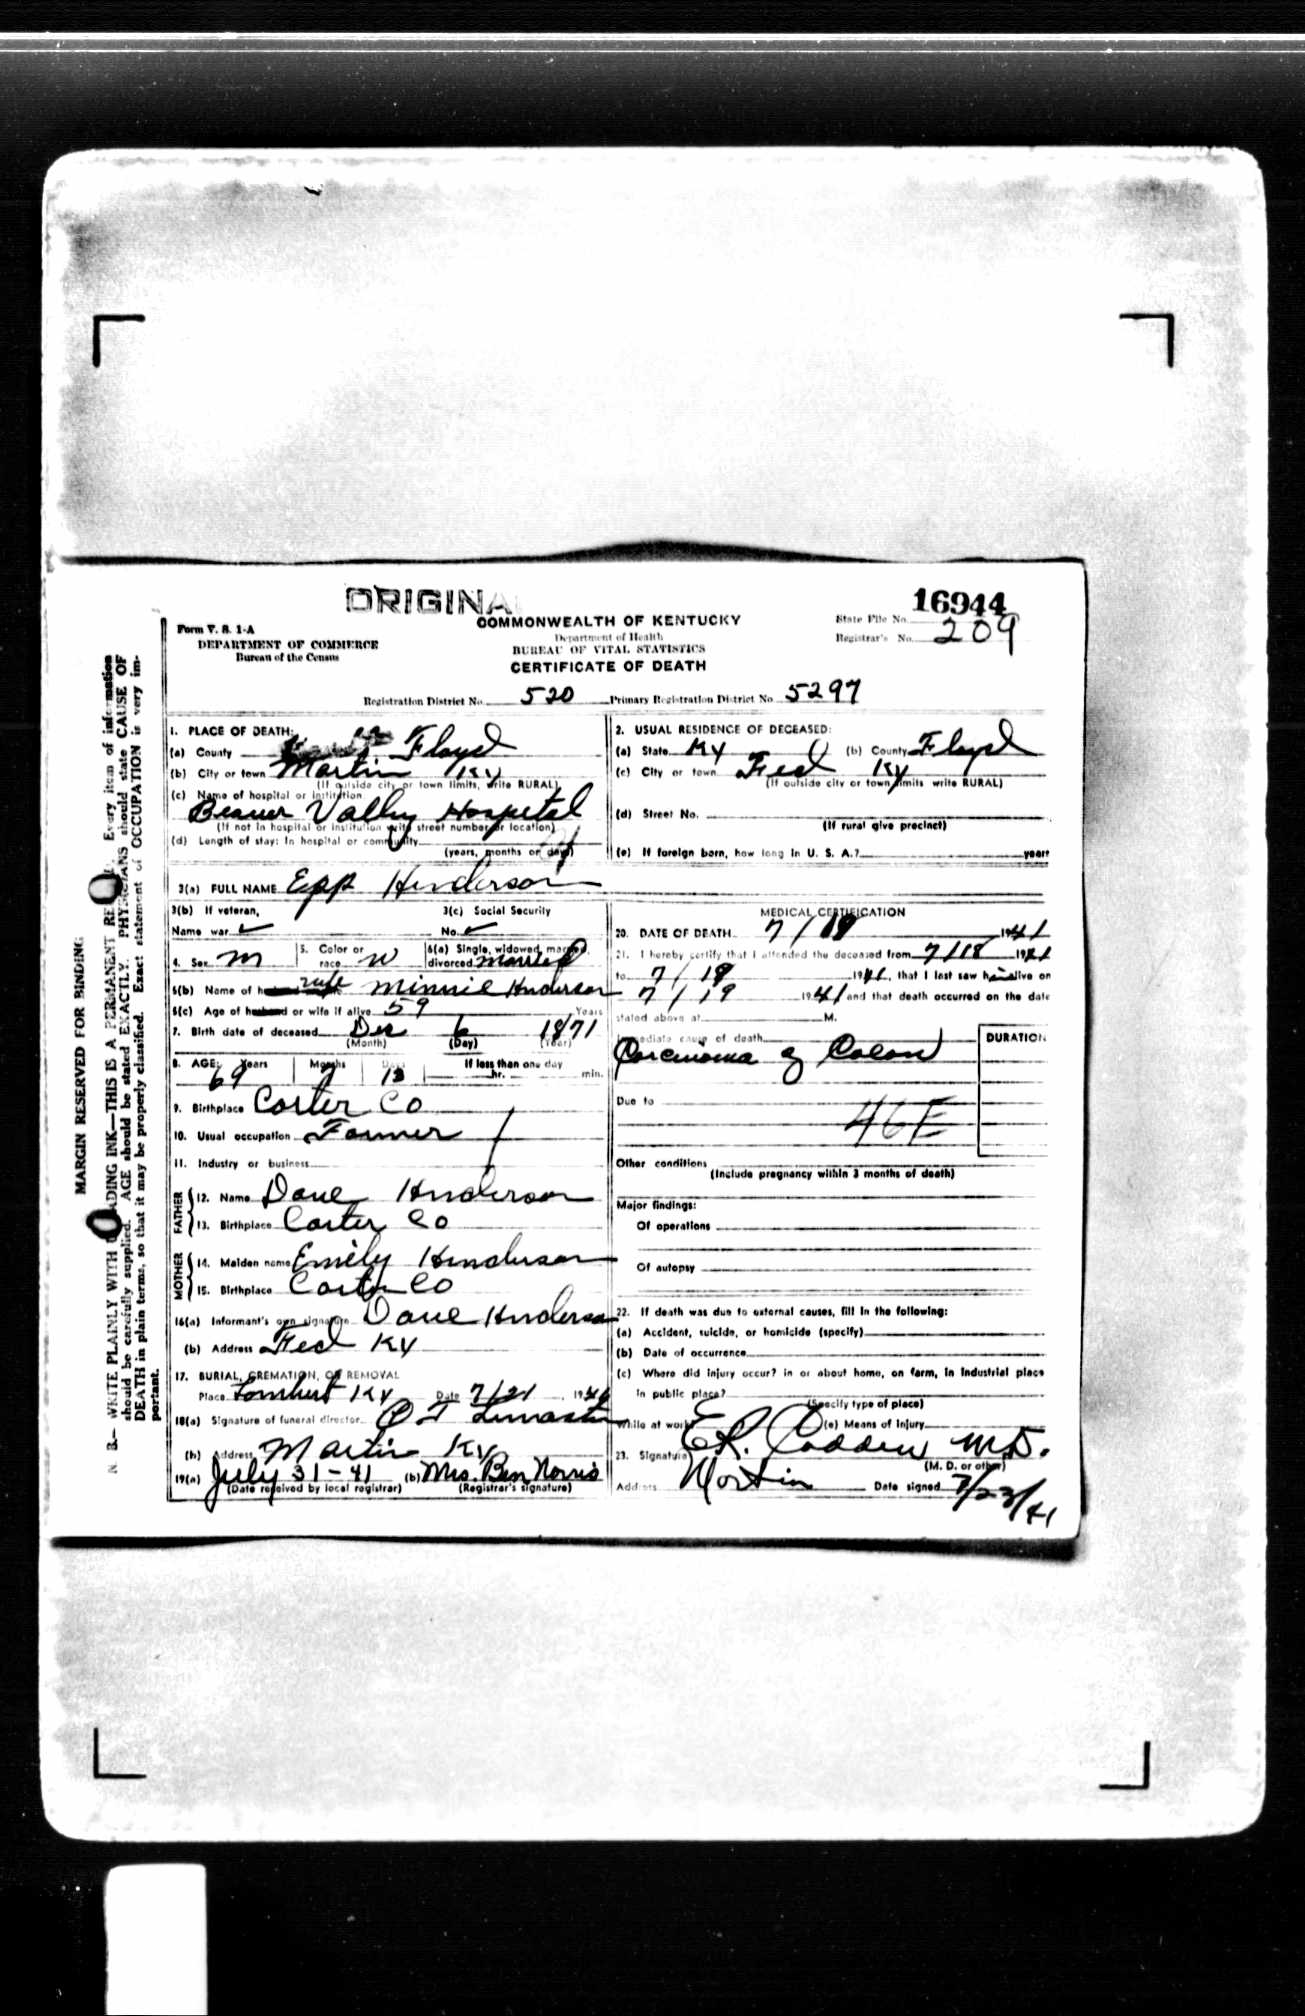 ORIGINA
16944
COMMONWEALTH OF KENTUCKY
Form V. S. 1-A
State File No.
DEPARTMENT OF COMMERCE
Department of Health
Registrar's No. 209
Bureau of the Census
BUREAU OF VITAL STATISTICS
CERTIFICATE OF DEATH
Registration District No. 520 Primary Registration District No. 5297
1. PLACE OF DEATH:
(a) County Floyd
(b) City or town Martin Ky
(If outside city or town limits, write RURAL)
(c) Name of hospital or institution
Beaver Valley Hospital
(If not in hospital or institution write street number or location)
(d) Length of stay: In hospital or community
(years, months or days)
2. USUAL RESIDENCE OF DECEASED:
(a) State Ky (b) County Floyd
(c) City or town Fed Ky
(If outside city or town limits write RURAL)
(d) Street No.
(If rural give precinct)
(e) If foreign born, how long in U. S. A.? years
3(a) FULL NAME Epp Henderson
3(b) If veteran, 3(c) Social Security
Name war ✓ No. ✓
4. Sex M 5. Color or race W 6(a) Single, widowed, married, divorced married
6(b) Name of wife Minnie Henderson
6(c) Age of husband or wife if alive 59 Years
7. Birth date of deceased Dec 6 1871
(Month) (Day) (Year)
8. AGE: Years Months Days If less than one day
69 7 13 hr. min.
9. Birthplace Carter Co
10. Usual occupation Farmer
11. Industry or business
FATHER
12. Name Dave Henderson
13. Birthplace Carter Co
MOTHER
14. Maiden name Emily Henderson
15. Birthplace Carter Co
16(a) Informant's own signature Dave Henderson
(b) Address Fed Ky
17. BURIAL, CREMATION, OR REMOVAL
Place Ky Date 7/21 19
18(a) Signature of funeral director
(b) Address Martin Ky
19(a) July 31-41 (b) Mrs. Ben Norris
(Date received by local registrar) (Registrar's signature)
MEDICAL CERTIFICATION
20. DATE OF DEATH 7/19 1941
21. I hereby certify that I attended the deceased from 7/18 1941
to 7/19 1941, that I last saw him alive on
7/19 1941 and that death occurred on the date
stated above at M.
Immediate cause of death
DURATION
Carcinoma of Colon
Due to
46E
Other conditions
(Include pregnancy within 3 months of death)
Major findings:
Of operations
Of autopsy
22. If death was due to external causes, fill in the following:
(a) Accident, suicide, or homicide (specify)
(b) Date of occurrence
(c) Where did injury occur? in or about home, on farm, in industrial place
in public place?
(Specify type of place)
While at work (e) Means of injury
23. Signature M.D.
(M. D. or other)
Address Martin Date signed 7/23/41
MARGIN RESERVED FOR BINDING
N. B.— WRITE PLAINLY WITH ADING INK—THIS IS A PERMANENT RE Every item of information
should be carefully supplied. AGE should be stated EXACTLY. PHYSICIANS should state CAUSE OF
DEATH in plain terms, so that it may be properly classified. Exact statement of OCCUPATION is very im-
portant.